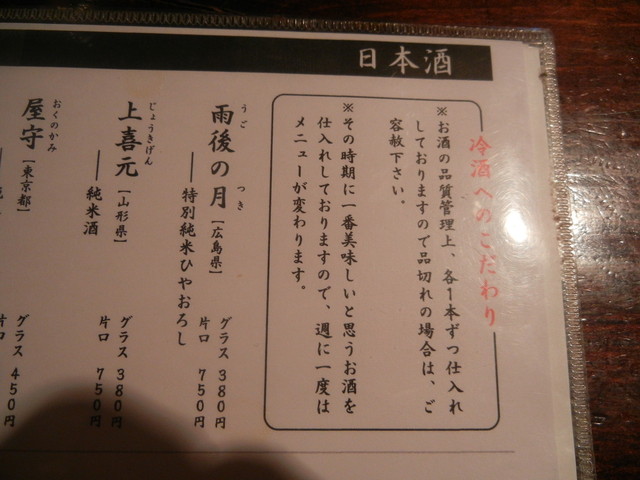 日本酒
冷酒へのこだわり
※お酒の品質管理上、各1本ずつ仕入れ
しておりますので品切れの場合は、ご
容赦下さい。
※その時期に一番美味しいと思うお酒を
仕入れしておりますので、週に一度は
メニューが変わります。
うご つき
雨後の月［広島県］
―特別純米ひやおろし
グラス 380円
片口 750円
じょうきげん
上喜元［山形県］
―純米酒
グラス 380円
片口 750円
おくのかみ
屋守［東京都］
グラス 450円